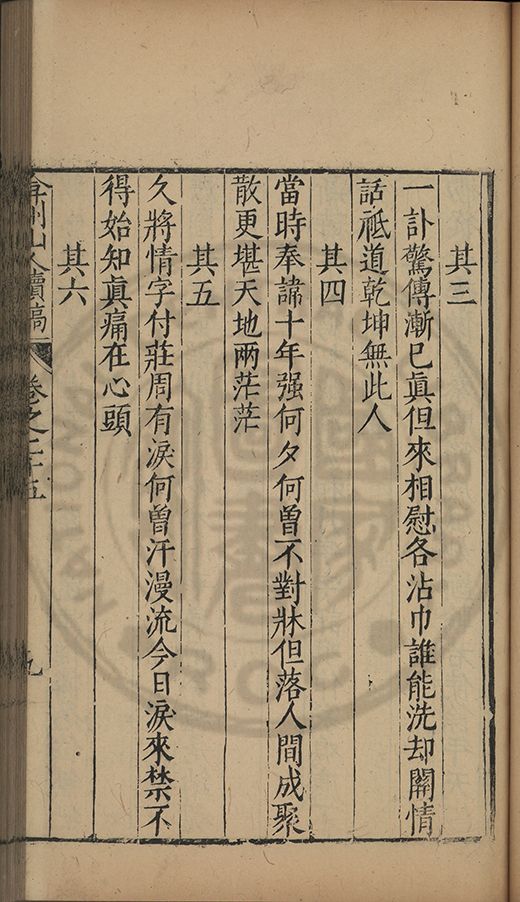 其三
一訃驚傳漸已眞但來相慰各沾巾誰能洗却關情
話祗道乾坤無此人
其四
當時奉諱十年强何夕何曾不對牀但落人間成聚
散更堪天地兩茫茫
其五
久將情字付莊周有淚何曾汗漫流今日淚來禁不
得始知眞痛在心頭
其六
弇州山人續稿
卷之二十五
九